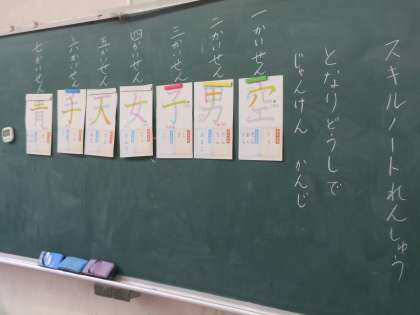 スキルノートれんしゅう
となりどうしで
じゃんけん かんじ
一かいせん
空
二かいせん
男
三かいせん
子
四かいせん
女
五かいせん
天
六かいせん
手
七かいせん
青